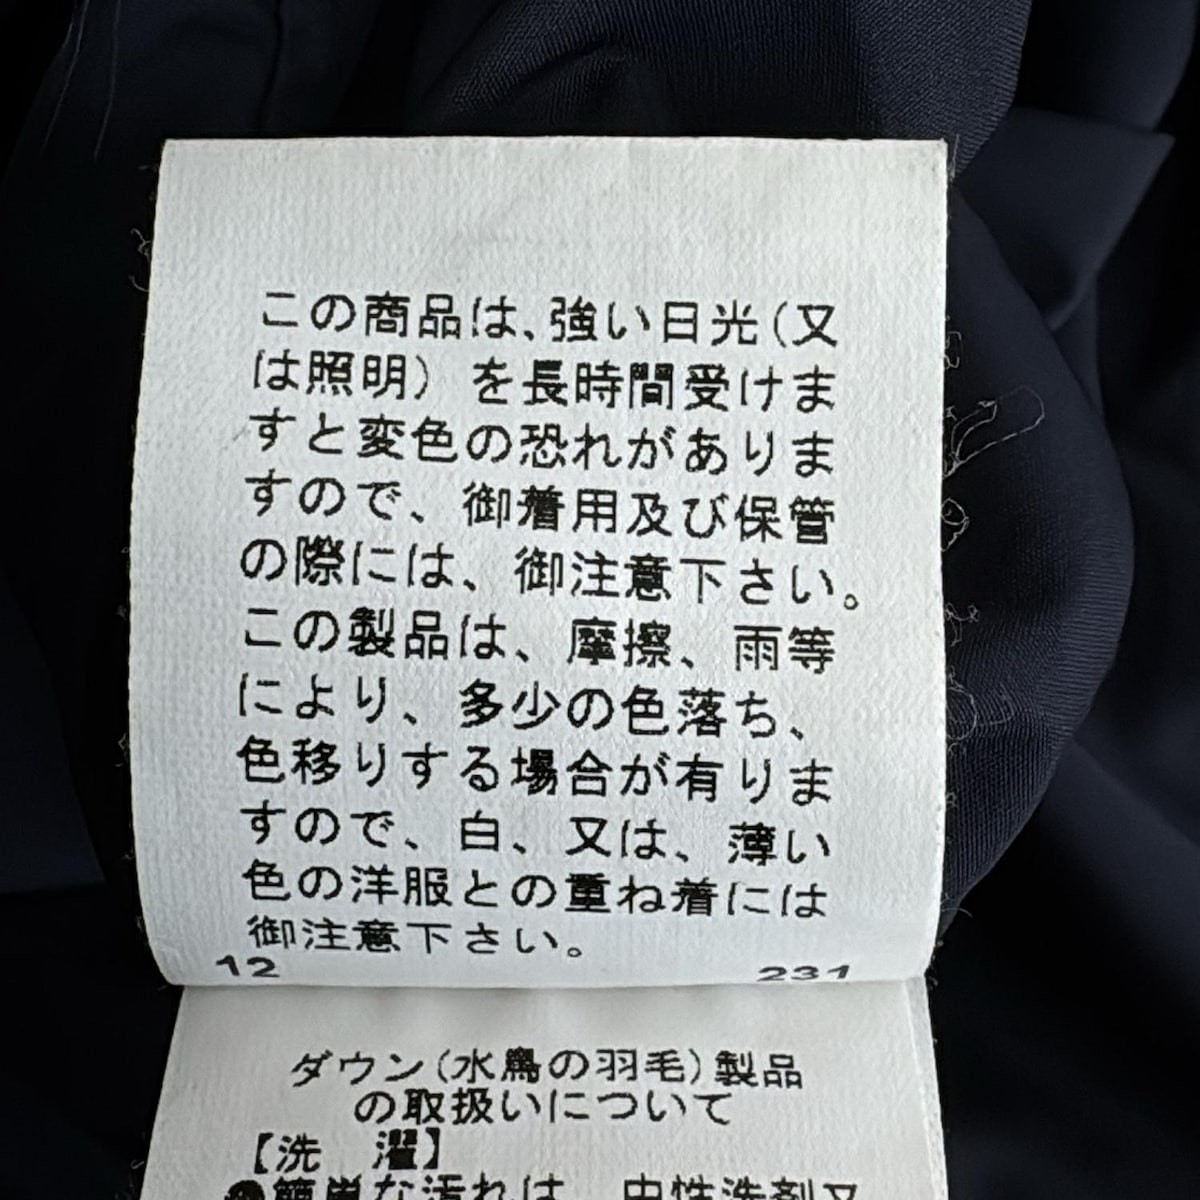 この商品は、強い日光(又
は照明) を長時間受けま
すと変色の恐れがありま
すので、御着用及び保管
の際には、御注意下さい。
この製品は、摩擦、雨等
により、多少の色落ち、
色移りする場合が有りま
すので、白、又は、薄い
色の洋服との重ね着には
御注意下さい。
12 231
ダウン(水鳥の羽毛)製品
の取扱いについて
【洗 濯】
簡単な汚れは、中性洗剤又